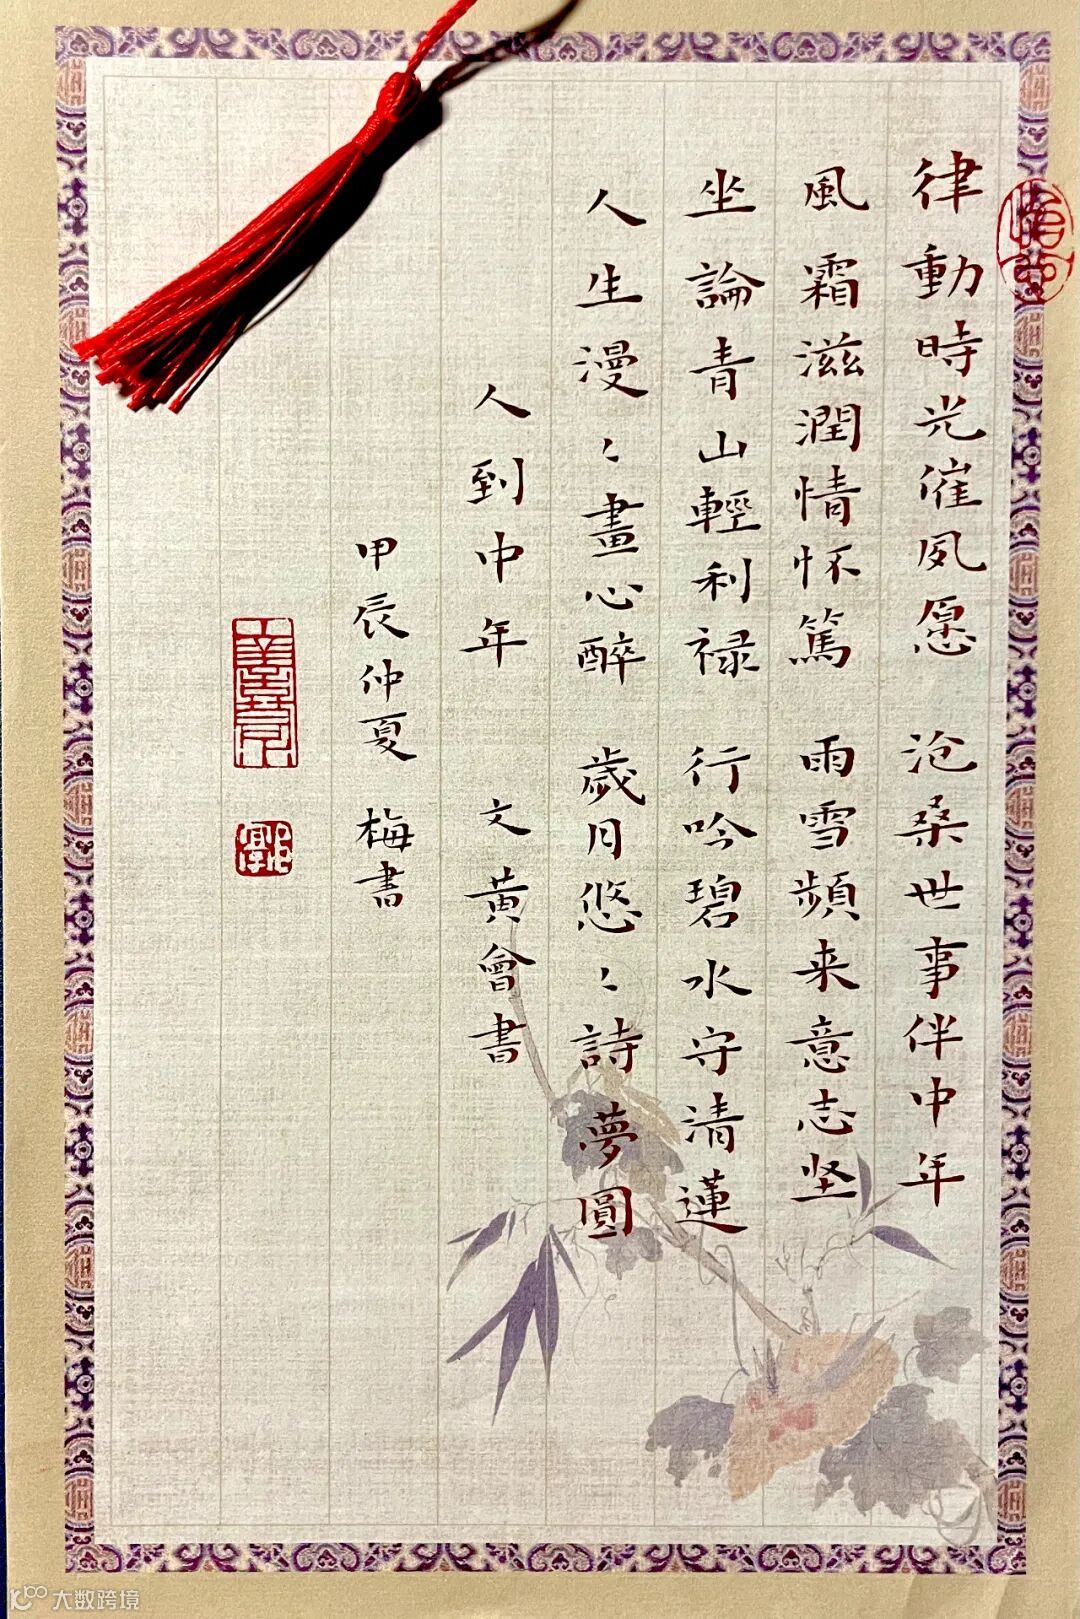 律動時光催夙愿 沧桑世事伴中年
風霜滋潤情怀篤 雨雪頻来意志坚
坐論青山輕利禄 行吟碧水守清蓮
人生漫〻畫心醉 歲月悠〻詩夢圓
人到中年 文黄會書
甲辰仲夏 梅書
大数跨境